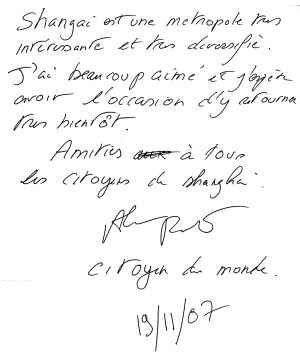 Shangai est une metropole tres
intéressante et tres diversifié.
J'ai beaucoup aimé et j'espère
avoir l'occasion d'y retourner
tres bientôt.
Amitiés à tous
les citoyens de Shanghai.
citoyen du monde.
19/11/07